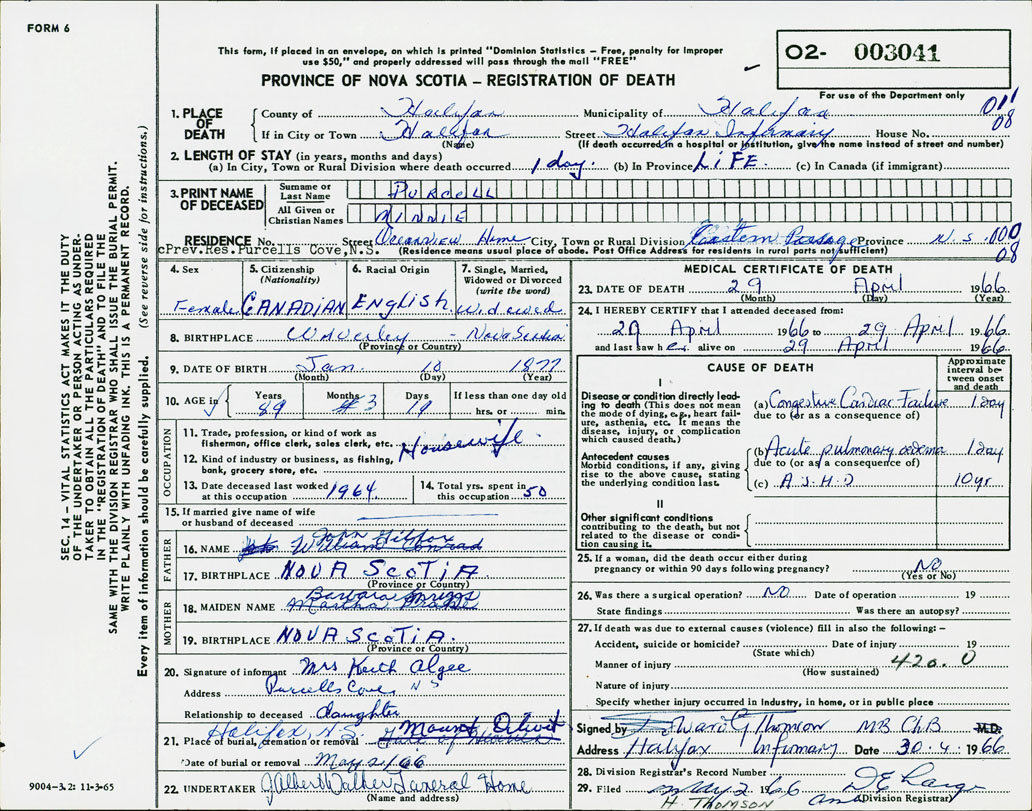 FORM 6
This form, if placed in an envelope, on which is printed "Dominion Statistics – Free, penalty for improper
use $50," and properly addressed will pass through the mail "FREE"
PROVINCE OF NOVA SCOTIA – REGISTRATION OF DEATH
02- 003041
For use of the Department only
SEC. 14 – VITAL STATISTICS ACT MAKES IT THE DUTY
OF THE UNDERTAKER OR PERSON ACTING AS UNDER-
TAKER TO OBTAIN ALL THE PARTICULARS REQUIRED
IN THE "REGISTRATION OF DEATH" AND TO FILE THE
SAME WITH THE DIVISION REGISTRAR WHO SHALL ISSUE THE BURIAL PERMIT.
WRITE PLAINLY WITH UNFADING INK. THIS IS A PERMANENT RECORD.
Every item of information should be carefully supplied. (See reverse side for instructions.)
1. PLACE OF DEATH
County of Halifax Municipality of Halifax 011
If in City or Town Halifax Street Halifax Infirmary House No. 08
(Name) (If death occurred in a hospital or institution, give the name instead of street and number)
2. LENGTH OF STAY (in years, months and days)
(a) In City, Town or Rural Division where death occurred 1 day. (b) In Province LIFE. (c) In Canada (if immigrant)
3. PRINT NAME OF DECEASED
Surname or Last Name PURCELL
All Given or Christian Names MINNIE
RESIDENCE No. Street Oceanview Home City, Town or Rural Division Eastern Passage Province N.S 000
cPrev.Res.Purcells Cove,N.S. (Residence means usual place of abode. Post Office Address for residents in rural parts not sufficient) 08
4. Sex
Female
5. Citizenship
(Nationality)
CANADIAN
6. Racial Origin
English
7. Single, Married,
Widowed or Divorced
(write the word)
Widowed
8. BIRTHPLACE Waverley - Nova Scotia
(Province or Country)
9. DATE OF BIRTH Jan. 10 1877
(Month) (Day) (Year)
10. AGE in Years 89 Months 3 Days 19 If less than one day old
hrs. or min.
OCCUPATION
11. Trade, profession, or kind of work as
fisherman, office clerk, sales clerk, etc. Housewife.
12. Kind of industry or business, as fishing,
bank, grocery store, etc.
13. Date deceased last worked
at this occupation 1964
14. Total yrs. spent in
this occupation 50
15. If married give name of wife
or husband of deceased
FATHER
16. NAME William Conrad
17. BIRTHPLACE NOVA SCOTIA.
(Province or Country)
MOTHER
18. MAIDEN NAME Barbara
Martha
19. BIRTHPLACE NOVA SCOTIA.
(Province or Country)
20. Signature of informant Mrs Keith Algee
Address Purcells Cove, NS
Relationship to deceased daughter
Halifax, N.S. Mount Olivet
21. Place of burial, cremation or removal
Date of burial or removal May 2/66
22. UNDERTAKER J Albert Walker Funeral Home
(Name and address)
9004–3.2: 11-3-65
MEDICAL CERTIFICATE OF DEATH
23. DATE OF DEATH 29 April 1966
(Month) (Day) (Year)
24. I HEREBY CERTIFY that I attended deceased from:
April 1966 to 29 April 1966
and last saw her alive on 29 April 1966
CAUSE OF DEATH
Approximate interval between onset and death
I
Disease or condition directly lead-
ing to death (This does not mean
the mode of dying, e.g., heart fail-
ure, asthenia, etc. It means the
disease, injury, or complication
which caused death.)
(a) Congestive Cardiac Failure 1 day
due to (or as a consequence of)
Antecedent causes
Morbid conditions, if any, giving
rise to the above cause, stating
the underlying condition last.
(b) Acute pulmonary oedema 1 day
due to (or as a consequence of)
(c) A S H D 10yr
II
Other significant conditions
contributing to the death, but not
related to the disease or condi-
tion causing it.
25. If a woman, did the death occur either during
pregnancy or within 90 days following pregnancy? NO
(Yes or No)
26. Was there a surgical operation? NO Date of operation 19
State findings Was there an autopsy?
27. If death was due to external causes (violence) fill in also the following:–
Accident, suicide or homicide? Date of injury 19
(State which)
Manner of injury 420.0
(How sustained)
Nature of injury
Specify whether injury occurred in Industry, in home, or in public place
Signed by Edward G Thomson MB ChB M.D.
Address Halifax Infirmary Date 30.4.1966
28. Division Registrar's Record Number
29. Filed May 2 1966 Division Registrar
H. THOMSON